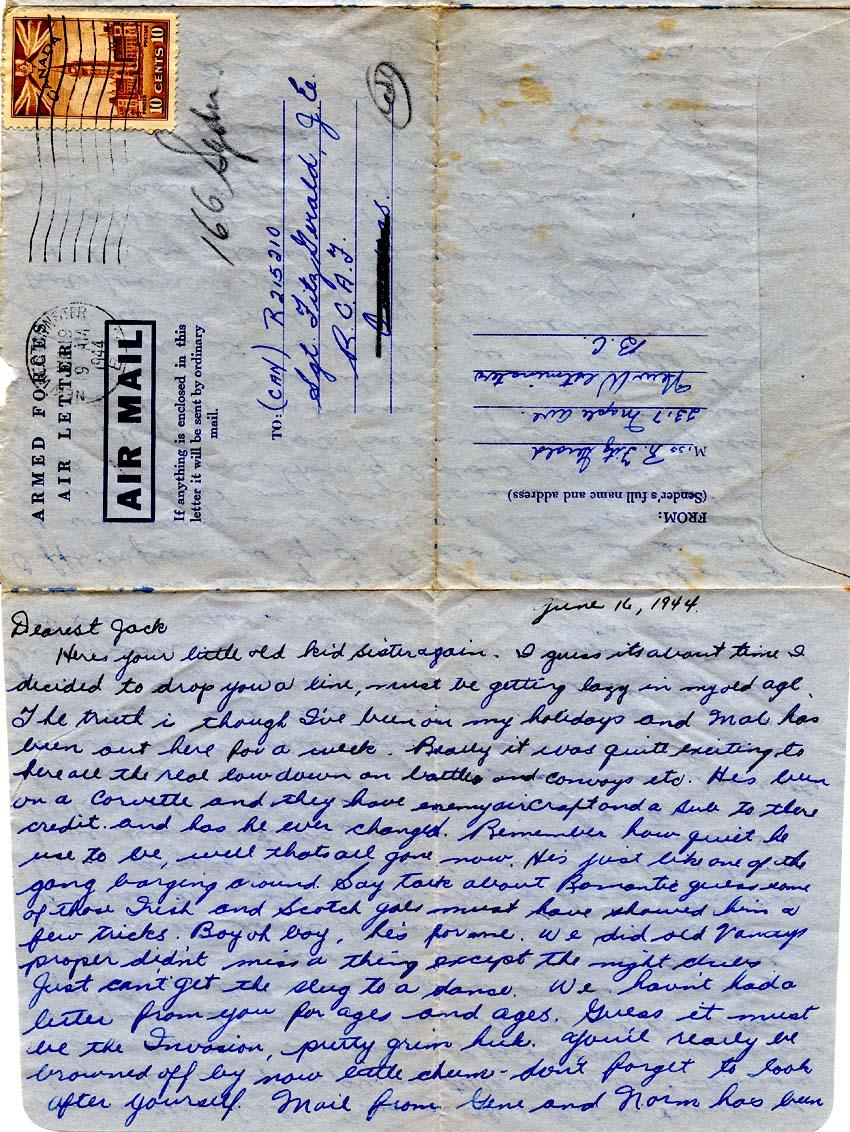 CANADA
POSTAGE POSTES
10 CENTS 10
1944
ARMED FORCES
AIR LETTER
AIR MAIL
If anything is enclosed in this
letter it will be sent by ordinary
mail.
166
TO: (CAN) R215210
Sgt. FitzGerald, J. E.
R.C.A.F.
FROM:
(Sender's full name and address)
Miss R. FitzGerald
2317 Maple Ave.
New Westminster
B.C.
June 16, 1944.
Dearest Jack
Heres your little old kid sister again. I guess its about time I
decided to drop you a line, must be getting lazy in my old age.
The truth is though I've been on my holidays and Mal has
been out here for a week. Really it was quite exciting to
here all the real lowdown on battles and convoys etc. He's been
on a Corvette and they have enemy aircraft and a sub to there
credit. and has he ever changed. Remember how quiet he
use to be, well thats all gone now. He's just like one of the
gang barging around. Say talk about Romantic guess some
of those Irish and Scotch gals must have showed him a
few tricks. Boy oh boy, he's for me. We did old Van
proper didn't miss a thing except the night clubs.
Just can't get the slug to a dance. We havin't had a
letter from you for ages and ages. Guess it must
be the Invasion, pretty grim huh. You'll really be
browned off by now little chum - don't forget to look
after yourself. Mail from Gene and Norm has been